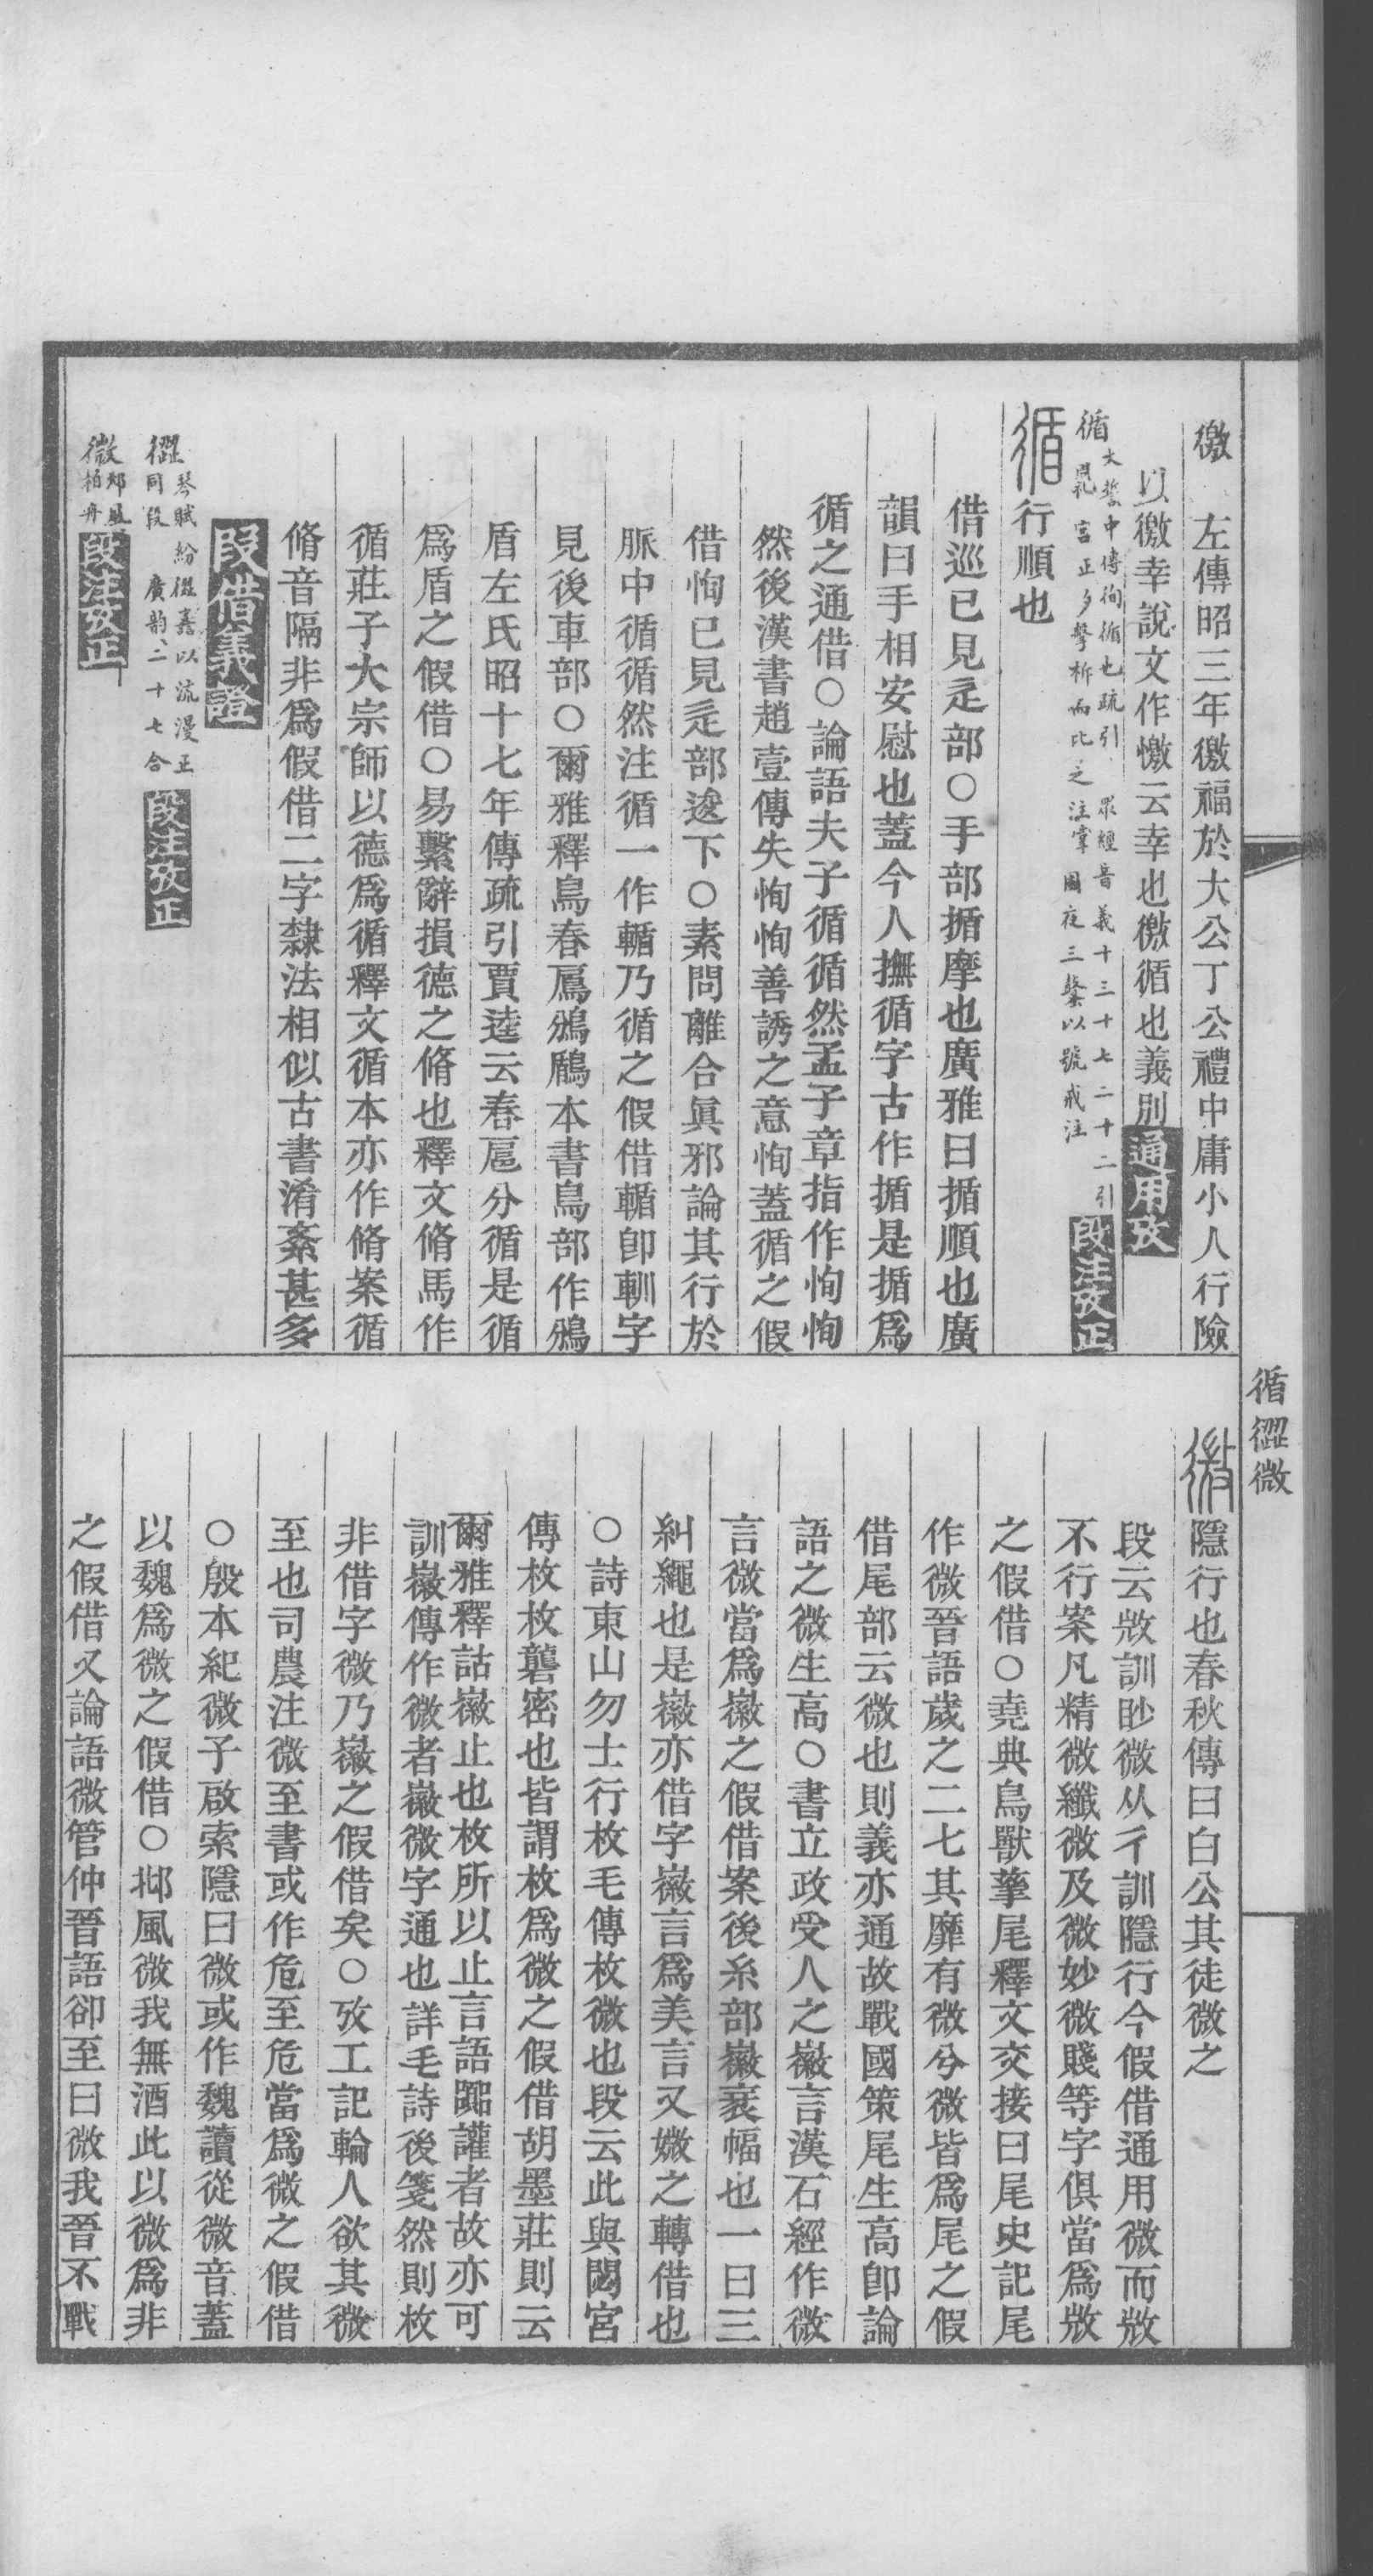 憿　左傳昭三年徼福於大公丁公禮中庸小人行險
以徼幸說文作憿云幸也徼循也義別通用攷
循　大誓中傳徇循也疏引　眾經音義十三十七二十二引
宮正夕擊柝而比之注　夜三鼜以號戒注　段注攷正
循行順也
借巡已見辵部〇手部揗摩也廣雅曰揗順也廣
韻曰手相安慰也蓋今人撫循字古作揗是揗爲
循之通借〇論語夫子循循然孟子章指作恂恂
然後漢書趙壹傳失恂恂善誘之意恂蓋循之假
借恂已見辵部逡下〇素問離合眞邪論其行於
脈中循循然注循一作輴乃循之假借輴卽軐字
見後車部〇爾雅釋鳥春鳸鳻鶞本書鳥部作鳻
盾左氏昭十七年傳疏引賈逵云春扈分循是循
爲盾之假借〇易繫辭損德之脩也釋文脩馬作
循莊子大宗師以德爲循釋文循本亦作脩案循
脩音隔非爲假借二字隸法相似古書淆紊甚多
段借義證
𢕬　琴賦紛𢕬譶以流漫正
同段　廣韵二十七合　段注攷正
微　邶風
柏舟　段注攷正
循𢕬微
微隱行也春秋傳曰白公其徒微之
段云𢼸訓眇微从彳訓隱行今假借通用微而𢼸
不行案凡精微纖微及微妙微賤等字俱當爲𢼸
之假借〇堯典鳥獸孳尾釋文交接曰尾史記尾
作微晉語歲之二七其靡有微兮微皆爲尾之假
借尾部云微也則義亦通故戰國策尾生高卽論
語之微生高〇書立政受人之徽言漢石經作微
言微當爲徽之假借案後糸部徽衺幅也一曰三
糾繩也是徽亦借字徽言爲美言又媺之轉借也
〇詩東山勿士行枚毛傳枚微也段云此與閟宮
傳枚枚礱密也皆謂枚爲微之假借胡墨莊則云
爾雅釋詁徽止也枚所以止言語嘂讙者故亦可
訓徽傳作微者徽微字通也詳毛詩後箋然則枚
非借字微乃徽之假借矣〇攷工記輪人欲其微
至也司農注微至書或作危至危當爲微之假借
〇殷本紀微子啟索隱曰微或作魏讀從微音蓋
以魏爲微之假借〇邶風微我無酒此以微爲非
之假借又論語微管仲晉語卻至曰微我晉不戰